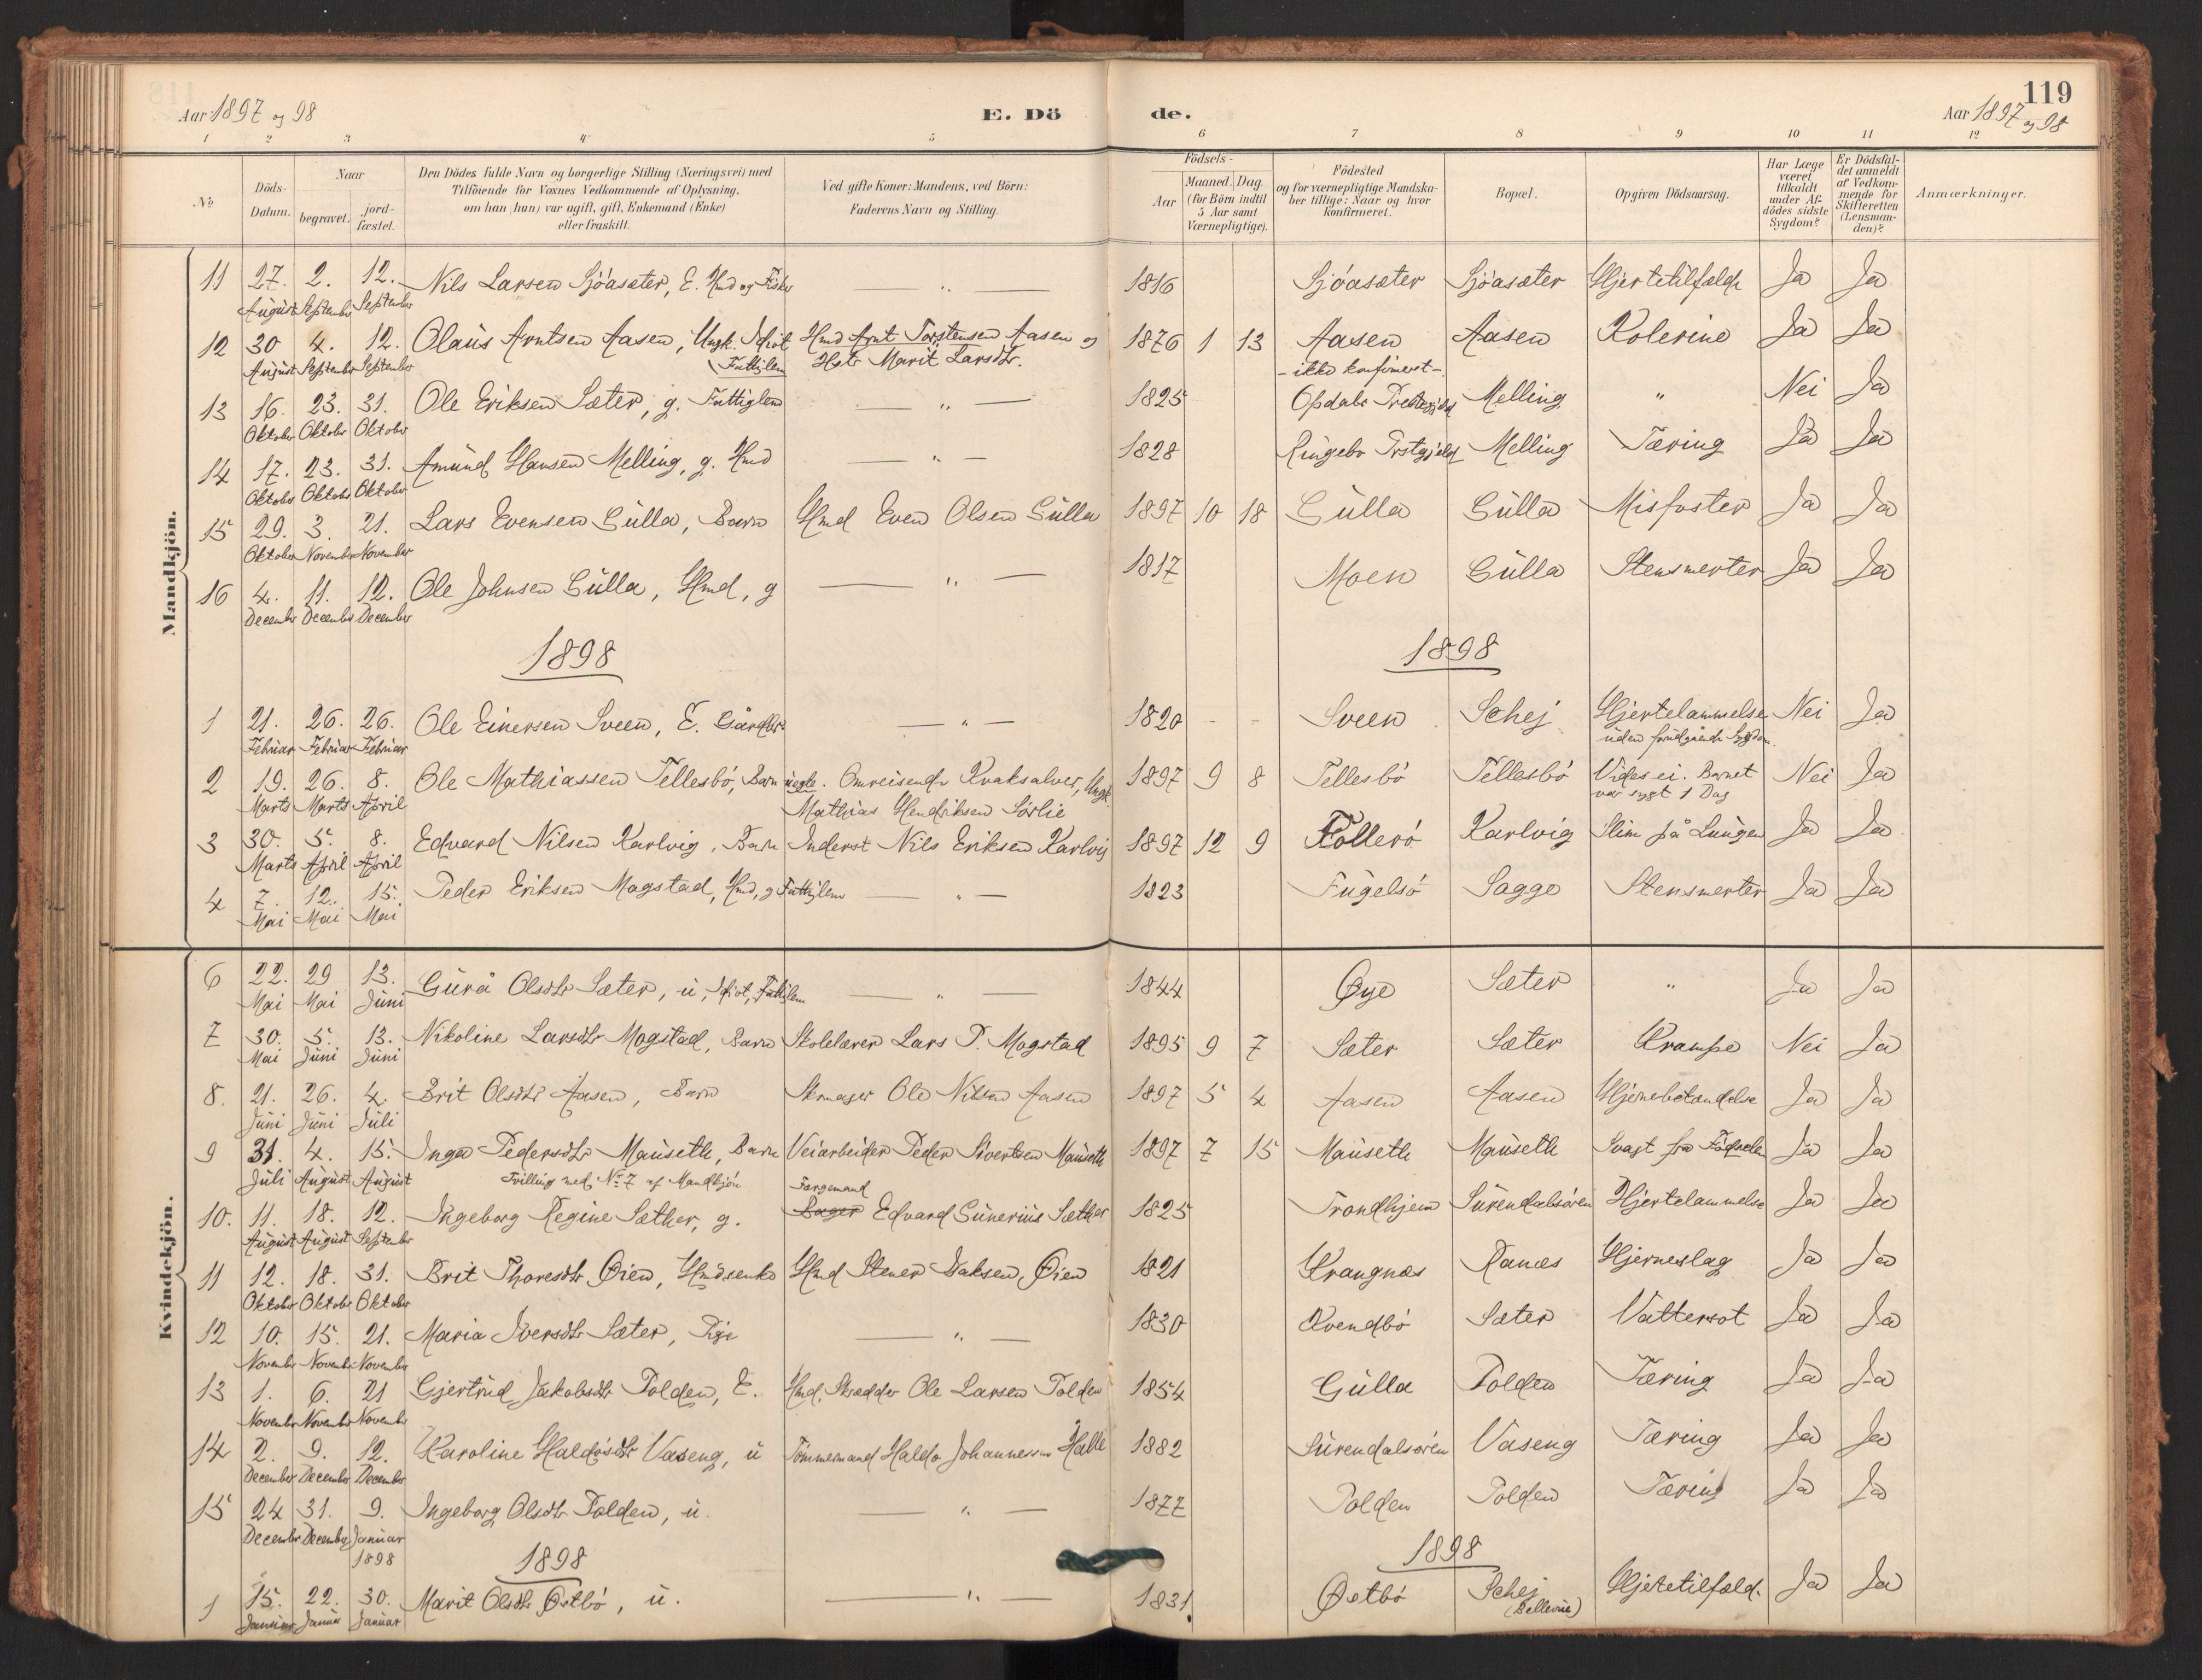 Aar 1897 og 98
E. Dö
de.
119
Aar 1897 og 98
1 2 3 4 5 6 7 8 9 10 11 12
No
Döds-Datum.
Naar
begravet.
jord-fæstet.
Den Dödes fulde Navn og borgerlige Stilling (Næringsvei) med
Tilföiende for Voxnes Vedkommende af Oplysning,
om han (hun) var ugift, gift, Enkemand (Enke)
eller fraskilt.
Ved gifte Koner: Mandens, ved Börn:
Faderens Navn og Stilling.
Födsels-
Aar
Maaned. Dag.
(for Börn indtil
5 Aar samt
Værnepligtige).
Födested
og for værnepligtige Mandska-
ber tillige: Naar og hvor
konfirmeret.
Bopæl.
Opgiven Dödsaarsag.
Har Læge
været
tilkaldt
under Af-
dödes sidste
Sygdom?
Er Dödsfal-
det anmeldt
af Vedkom-
mende for
Skifteretten
(Lensman-
den)?
Anmærkninger.
Mandkjön.
11 27. August 2. September 12. September Nils Larsen Sjöasæter, E. Hmd og Fisker — " — 1816 Sjöasæter Sjöasæter Hjertetilfælde Ja Ja
12 30 August 4. September 12. September Olaus Arntsen Aasen, Ungk. Idiot Fattiglem Hmd Arnt Torstensen Aasen og
Hstr Marit Larsdtr. 1876 1 13 Aasen
- ikke konfirmeret - Aasen Kolerine Ja Ja
13 16. Oktober 23. Oktober 31. Oktober Ole Eriksen Sæter, g. Fattiglem — " — 1825 Opdals Prestegjeld Melling " Nei Ja
14 17. Oktober 23. Oktober 31. Oktober Amund Hansen Melling, g. Hmd — " — 1828 Ringebo Prstgjeld Melling Tæring Ja Ja
15 29. Oktober 3. November 21. November Lars Evensen Gulla, Barn Hmd Even Olsen Gulla 1897 10 18 Gulla Gulla Misfoster Ja Ja
16 4. December 11. December 12. December Ole Johnsen Gulla, Hmd, g — " — 1817 Moen Gulla Stensmerter Ja Ja
1898
1898
1 21. Februar 26. Februar 26. Februar Ole Einersen Sveen, E. Gårdbr. — " — 1820 - - Sveen Schej Hjertelammelse
uden forudgående Sygdom. Nei Ja
2 19. Marts 26. Marts 8. April Ole Mathiassen Tellesbö, Barn uegte. Omreisende Kvaksalver, Ungk.
Mathias Hendriksen Sörlie 1897 9 8 Tellesbö Tellesbö Vides ei. Barnet
var sygt 1 Dag Nei Ja
3 30. Marts 5. April 8. April Edvard Nilsen Karlvig, Barn Inderst Nils Eriksen Karlvig 1897 12 9 Follerö Karlvig Slim på Lungen Ja Ja
4 7. Mai 12. Mai 15. Mai Peder Eriksen Mogstad, Hmd, g Fattiglem — " — 1823 Fugelsö Sagge Stensmerter Ja Ja
Kvindekjön.
6 22. Mai 29 Mai 13. Juni Gurå Olsdtr Sæter, u, Idiot, Fattiglem — " — 1844 Øye Sæter " Ja Ja
7 30. Mai 5. Juni 13. Juni Nikoline Larsdtr Mogstad, Barn Skolelærer Lars P. Mogstad 1895 9 7 Sæter Sæter Krampe Nei Ja
8. 21. Juni 26. Juni 4. Juli Brit Olsdtr Aasen, Barn Skomager Ole Nilsen Aasen 1897 5 4 Aasen Aasen Hjernebetændelse Ja Ja
9 31. Juli 4. August 15. August Inga Pedersdtr Mauseth, Barn
Tvilling med No 7 af Mandkjön Veiarbeider Peder Sivertsen Mauseth 1897 7 15 Mauseth Mauseth Svagt fra Födselen Ja Ja
10. 11. August 18. August 12. September Ingeborg Regine Sæther, g. Færgemand
Bager Edvard Sunerius Sæther 1825 Trondhjem Surendalsören Hjertelammelse Ja Ja
11 12. Oktober 18. Oktober 31. Oktober Brit Thoresdtr Øien, Hmdsenke Hmd Stener Isaksen Øien 1821 Krangnæs Ranæs Hjerneslag Ja Ja
12 10. November 15. November 21. November Maria Iversdtr Sæter, Pige — " — 1830 Kvendbö Sæter Vattersot Ja Ja
13 1. November 6. November 21 November Gjertrud Jakobsdtr Polden, E. Hmd, Skrædder Ole Larsen Polden 1854 Gulla Polden Tæring Ja Ja
14 2. December 9. December 12. December Karoline Haldosdtr Vaseng, u Tömmermand Haldo Johannessen Halle 1882 Surendalsören Vaseng Tæring Ja Ja
15 24 December 31. December 9. Januar 1898 Ingeborg Olsdtr Polden, u. — " — 1877 Polden Polden Tæring Ja Ja
1898
1898
1 15. Januar 22. Januar 30. Januar Marit Olsdtr Østbö, u. — " — 1831. Østbö Schej
(Bellevue) Hjertetilfæld. Ja Ja